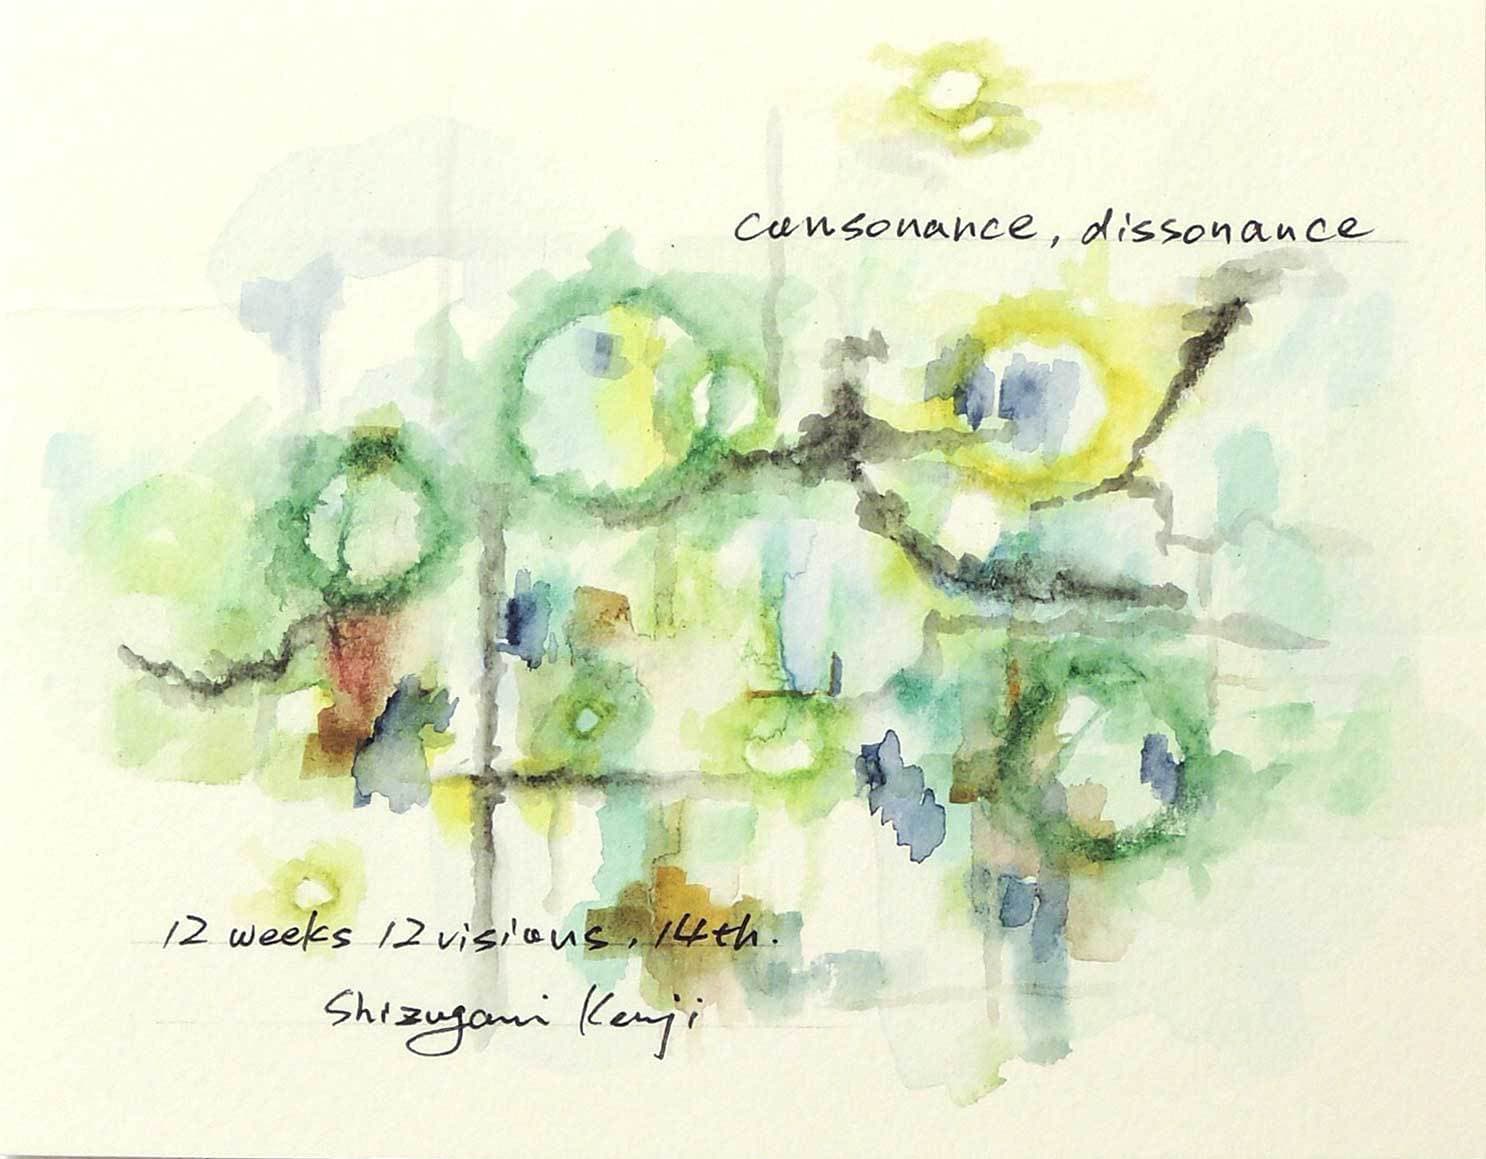 consonance, dissonance
12 weeks 12 visions, 14th.
Shizugami Kenji